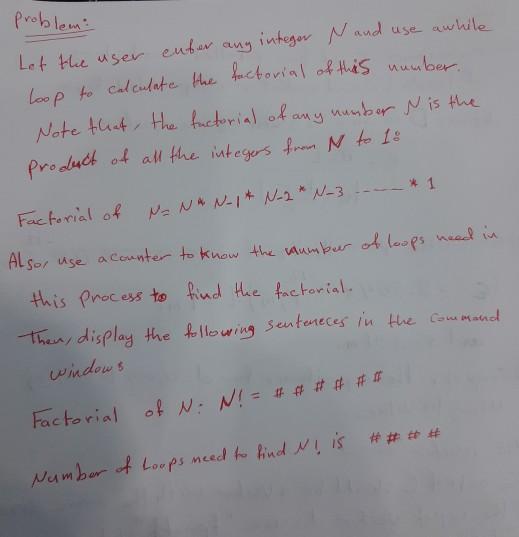 Problem:
Let the user enter any integer N and use awhile
loop to calculate the factorial of this number.
Note that, the factorial of any number N is the
product of all the integers from N to 1:
Factorial of N = N * N-1 * N-2 * N-3 ------ * 1
Also, use a counter to know the number of loops need in
this process to find the factorial.
Then, display the following senteneces in the Command
window:
Factorial of N: N! = # # # # # #
Number of Loops need to find N! is # # # #